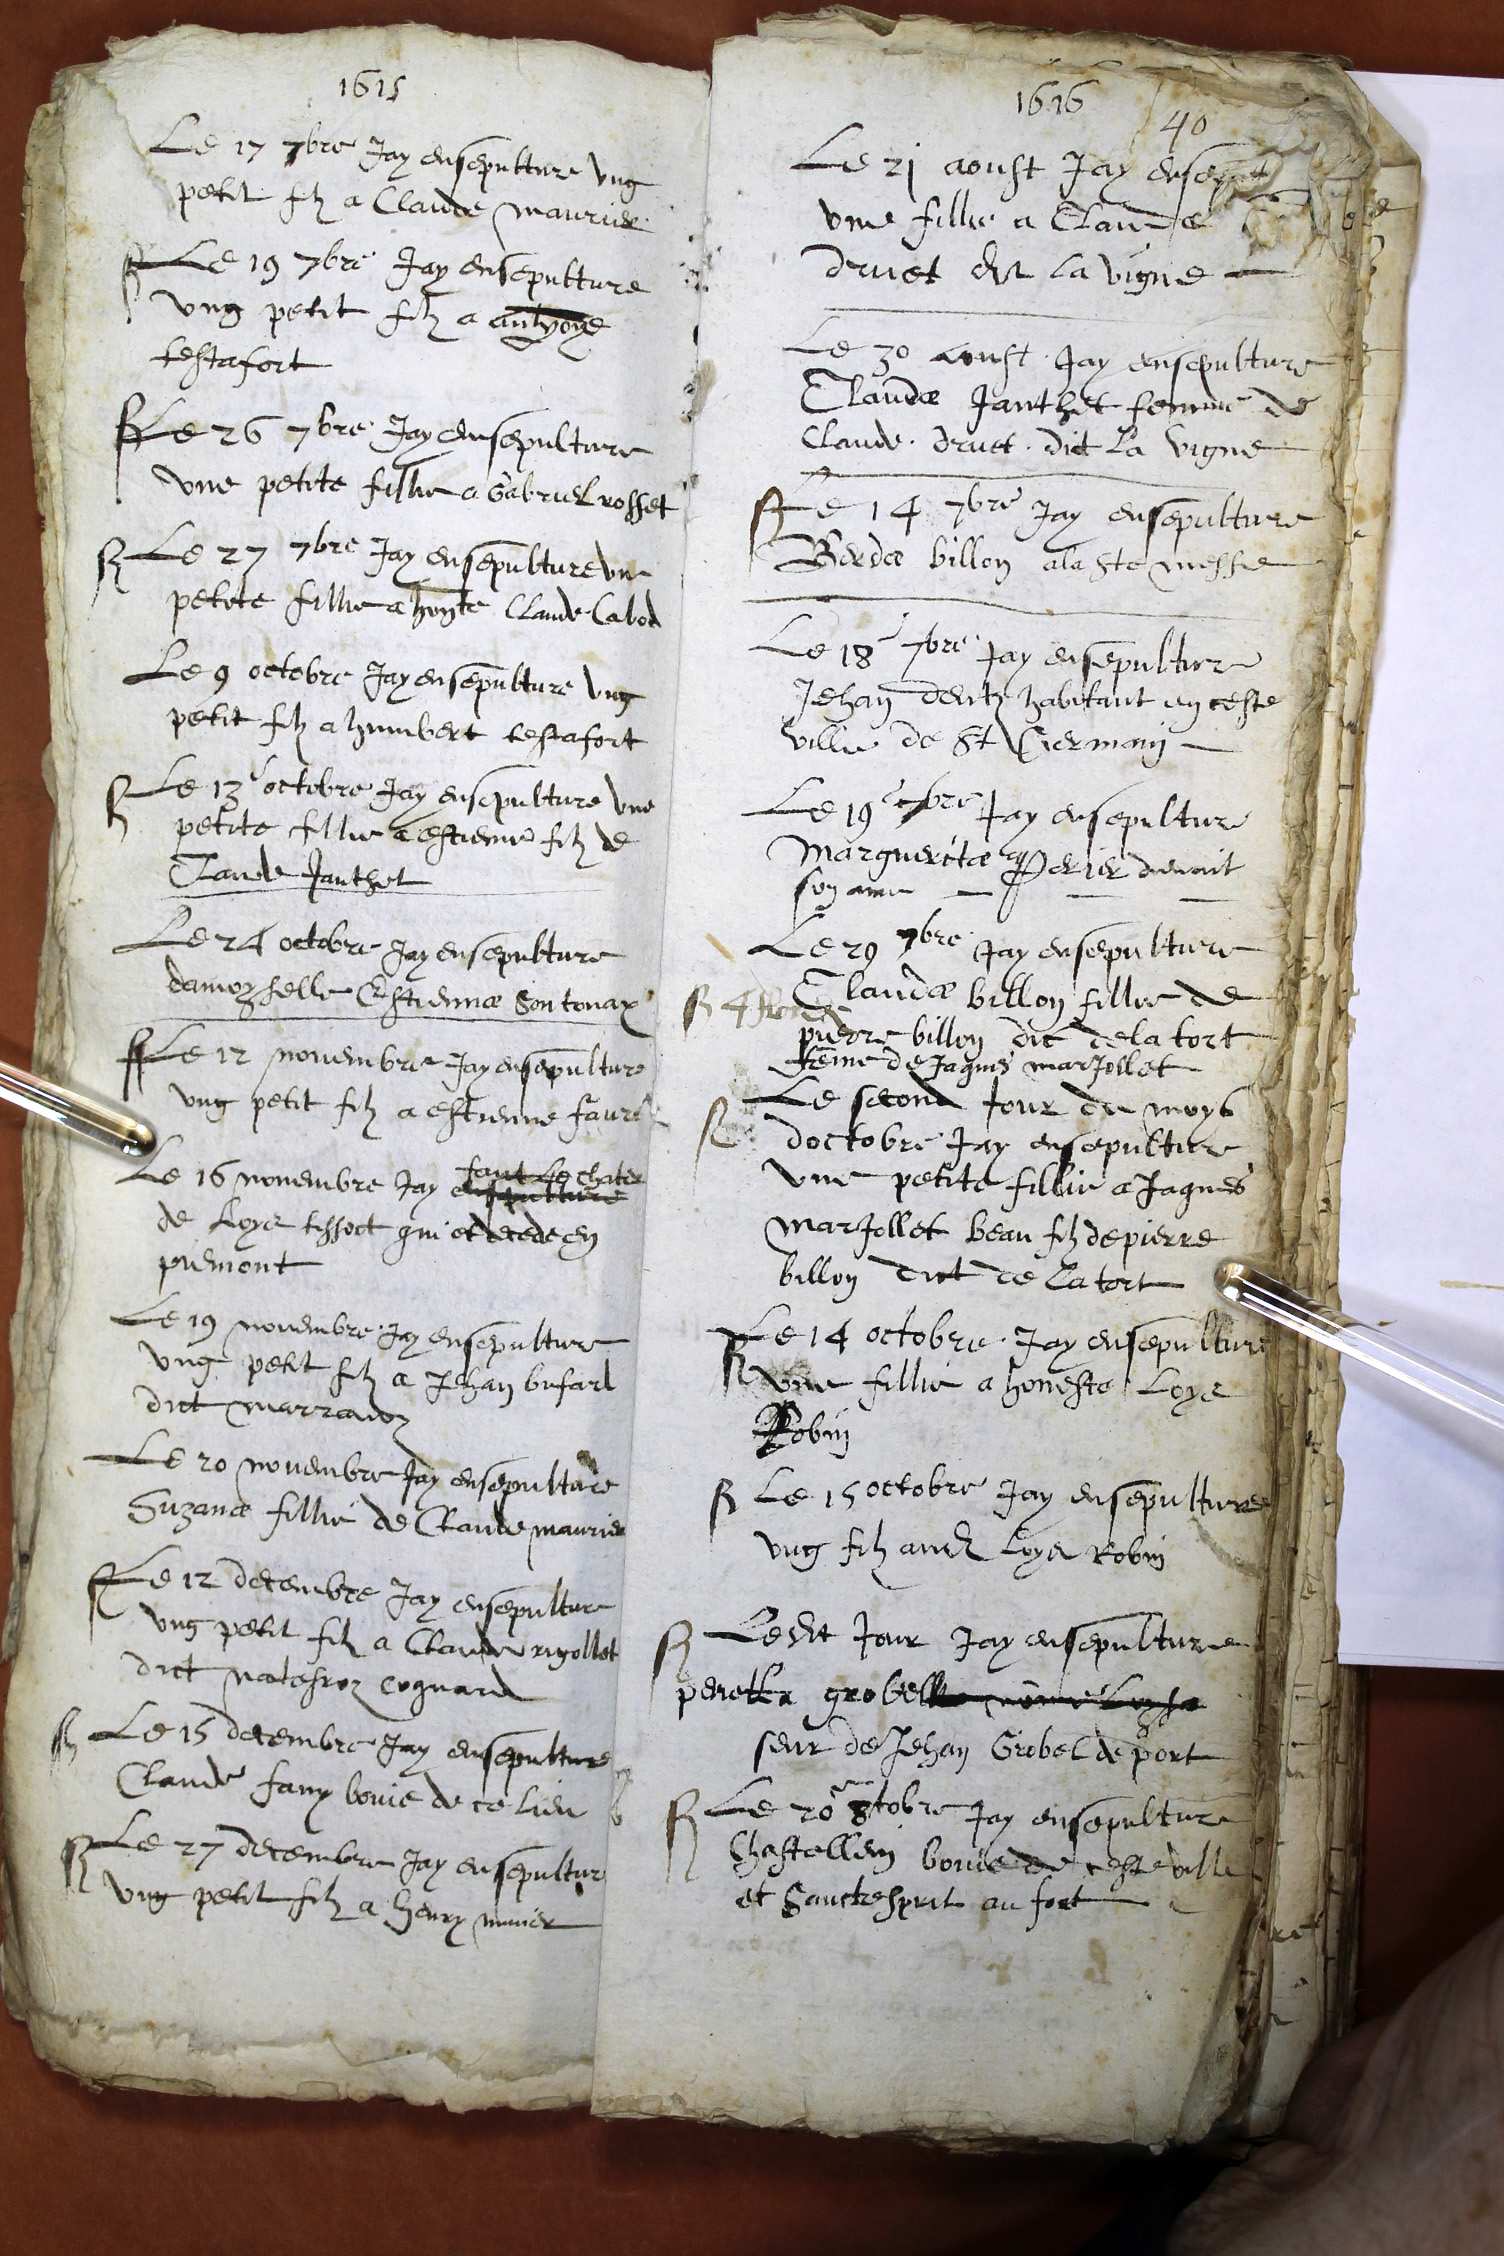 1615
Le 17 7bre Jay ensepulture ung
petit filz a Claude maurier
R Le 19 7bre Jay ensepulture
ung petit filz a anthoyne
testafort
R Le 26 7bre Jay ensepulture
une petite fillie a Gabriel rosset
R Le 27 7bre Jay ensepulture une
petite fillie a honte Claude Cabod
Le 9 octobre Jay ensepulture ung
petit filz a humbert testafort
R Le 13e octobre Jay ensepulture une
petite fillie a estienne filz de
Claude Janthet
Le 24 octobre Jay ensepulture
damoyselle Estiennæ Sontonax
R Le 12 novembre Jay ensepulture
ung petit filz a estienne favre
Le 16 novembre Jay ensepulture
de Loys tissot qui et decede en
piemont
Le 19 novembre Jay ensepulture
ung petit filz a Jehan bufard
dict
Le 20 novembre Jay ensepulture
Suzanæ fillie de Claude maurier
R Le 12 decembre Jay ensepulture
ung petit filz a Claude rigollet
dict cognard
R Le 15 decembre Jay ensepulture
Claude fany bouie de ce lieu
R Le 27 decembre Jay ensepultur
ung petit filz a henry
1616
40
Le 21 aoust Jay ensepult
une fillie a Claude
druet dit la vigne
Le 30 aoust Jay ensepulture
Claudæ Janthet femme de
Claude druet dict la vigne
R Le 14 7bre Jay ensepulture
billon a la ste messe
Le 18e 7bre Jay ensepulture
Jehan habitant en ceste
ville de St Germain
Le 19e 7bre Jay ensepulture
Marguerítæ Perier
son ame
Le 29 7bre Jay ensepulture
R 4 Claudæ billon fillie de
pierre billon dit de la tort
feme de Jaques marJollet
R Le second Jour du moys
doctobre Jay ensepulture
une petite fillie a Jaques
marJollet beau filz de pierre
billon dict de la tort
R Le 14 octobre Jay ensepulture
une fillie a honeste Loys
Robin
R Le 15 octobre Jay ensepulture
ung filz audt Loys Robin
R Ledit Jour Jay ensepulture
peretta grobel
seur de Jehan Grobel de port
R Le 20e 8tobre Jay ensepulture
Chastellein bouie de ceste ville
et Sanctesprit au fort